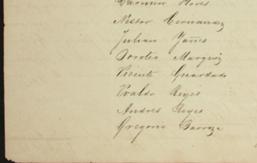 Nestor Hernandez
Julian Yañes
Doroteo Marquez
Vicente Guardado
Ubaldo Reyes
Andres Reyes
Gregorio Barraza